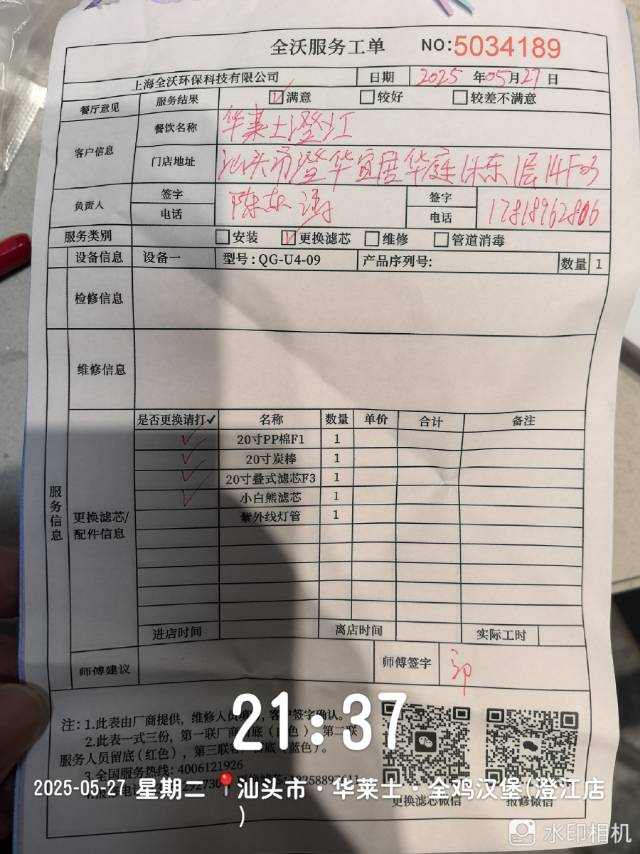 全沃服务工单 NO:5034189
上海全沃环保科技有限公司 日期 2025 年 05 月 27 日
餐厅意见 服务结果 ☑满意 ☐较好 ☐较差不满意
客户信息 餐饮名称 华莱士澄江
门店地址 汕头市澄华宜居华庭
负责人 签字 签字
电话 电话 17818962806
服务类别 ☐安装 ☑更换滤芯 ☐维修 ☐管道消毒
设备信息 设备一 型号: QG-U4-09 产品序列号: 数量 1
检修信息
维修信息
服务信息
更换滤芯/配件信息
是否更换请打✓ 名称 数量 单价 合计 备注
✓ 20寸PP棉F1 1
✓ 20寸炭棒 1
✓ 20寸叠式滤芯F3 1
✓ 小白熊滤芯 1
紫外线灯管 1
进店时间 离店时间 实际工时
师傅建议 师傅签字
注: 1.此表由厂商提供, 维修人员填 签字确认。
2.此表一式三份, 第一联厂商 底(白色) 第二联
服务人员留底(红色), 第三联 底(蓝色)。
3.全国服务热线: 4006121926
更换滤芯微信 报修微信
21:37
2025-05-27 星期二 汕头市·华莱士·全鸡汉堡(澄江店
)
水印相机